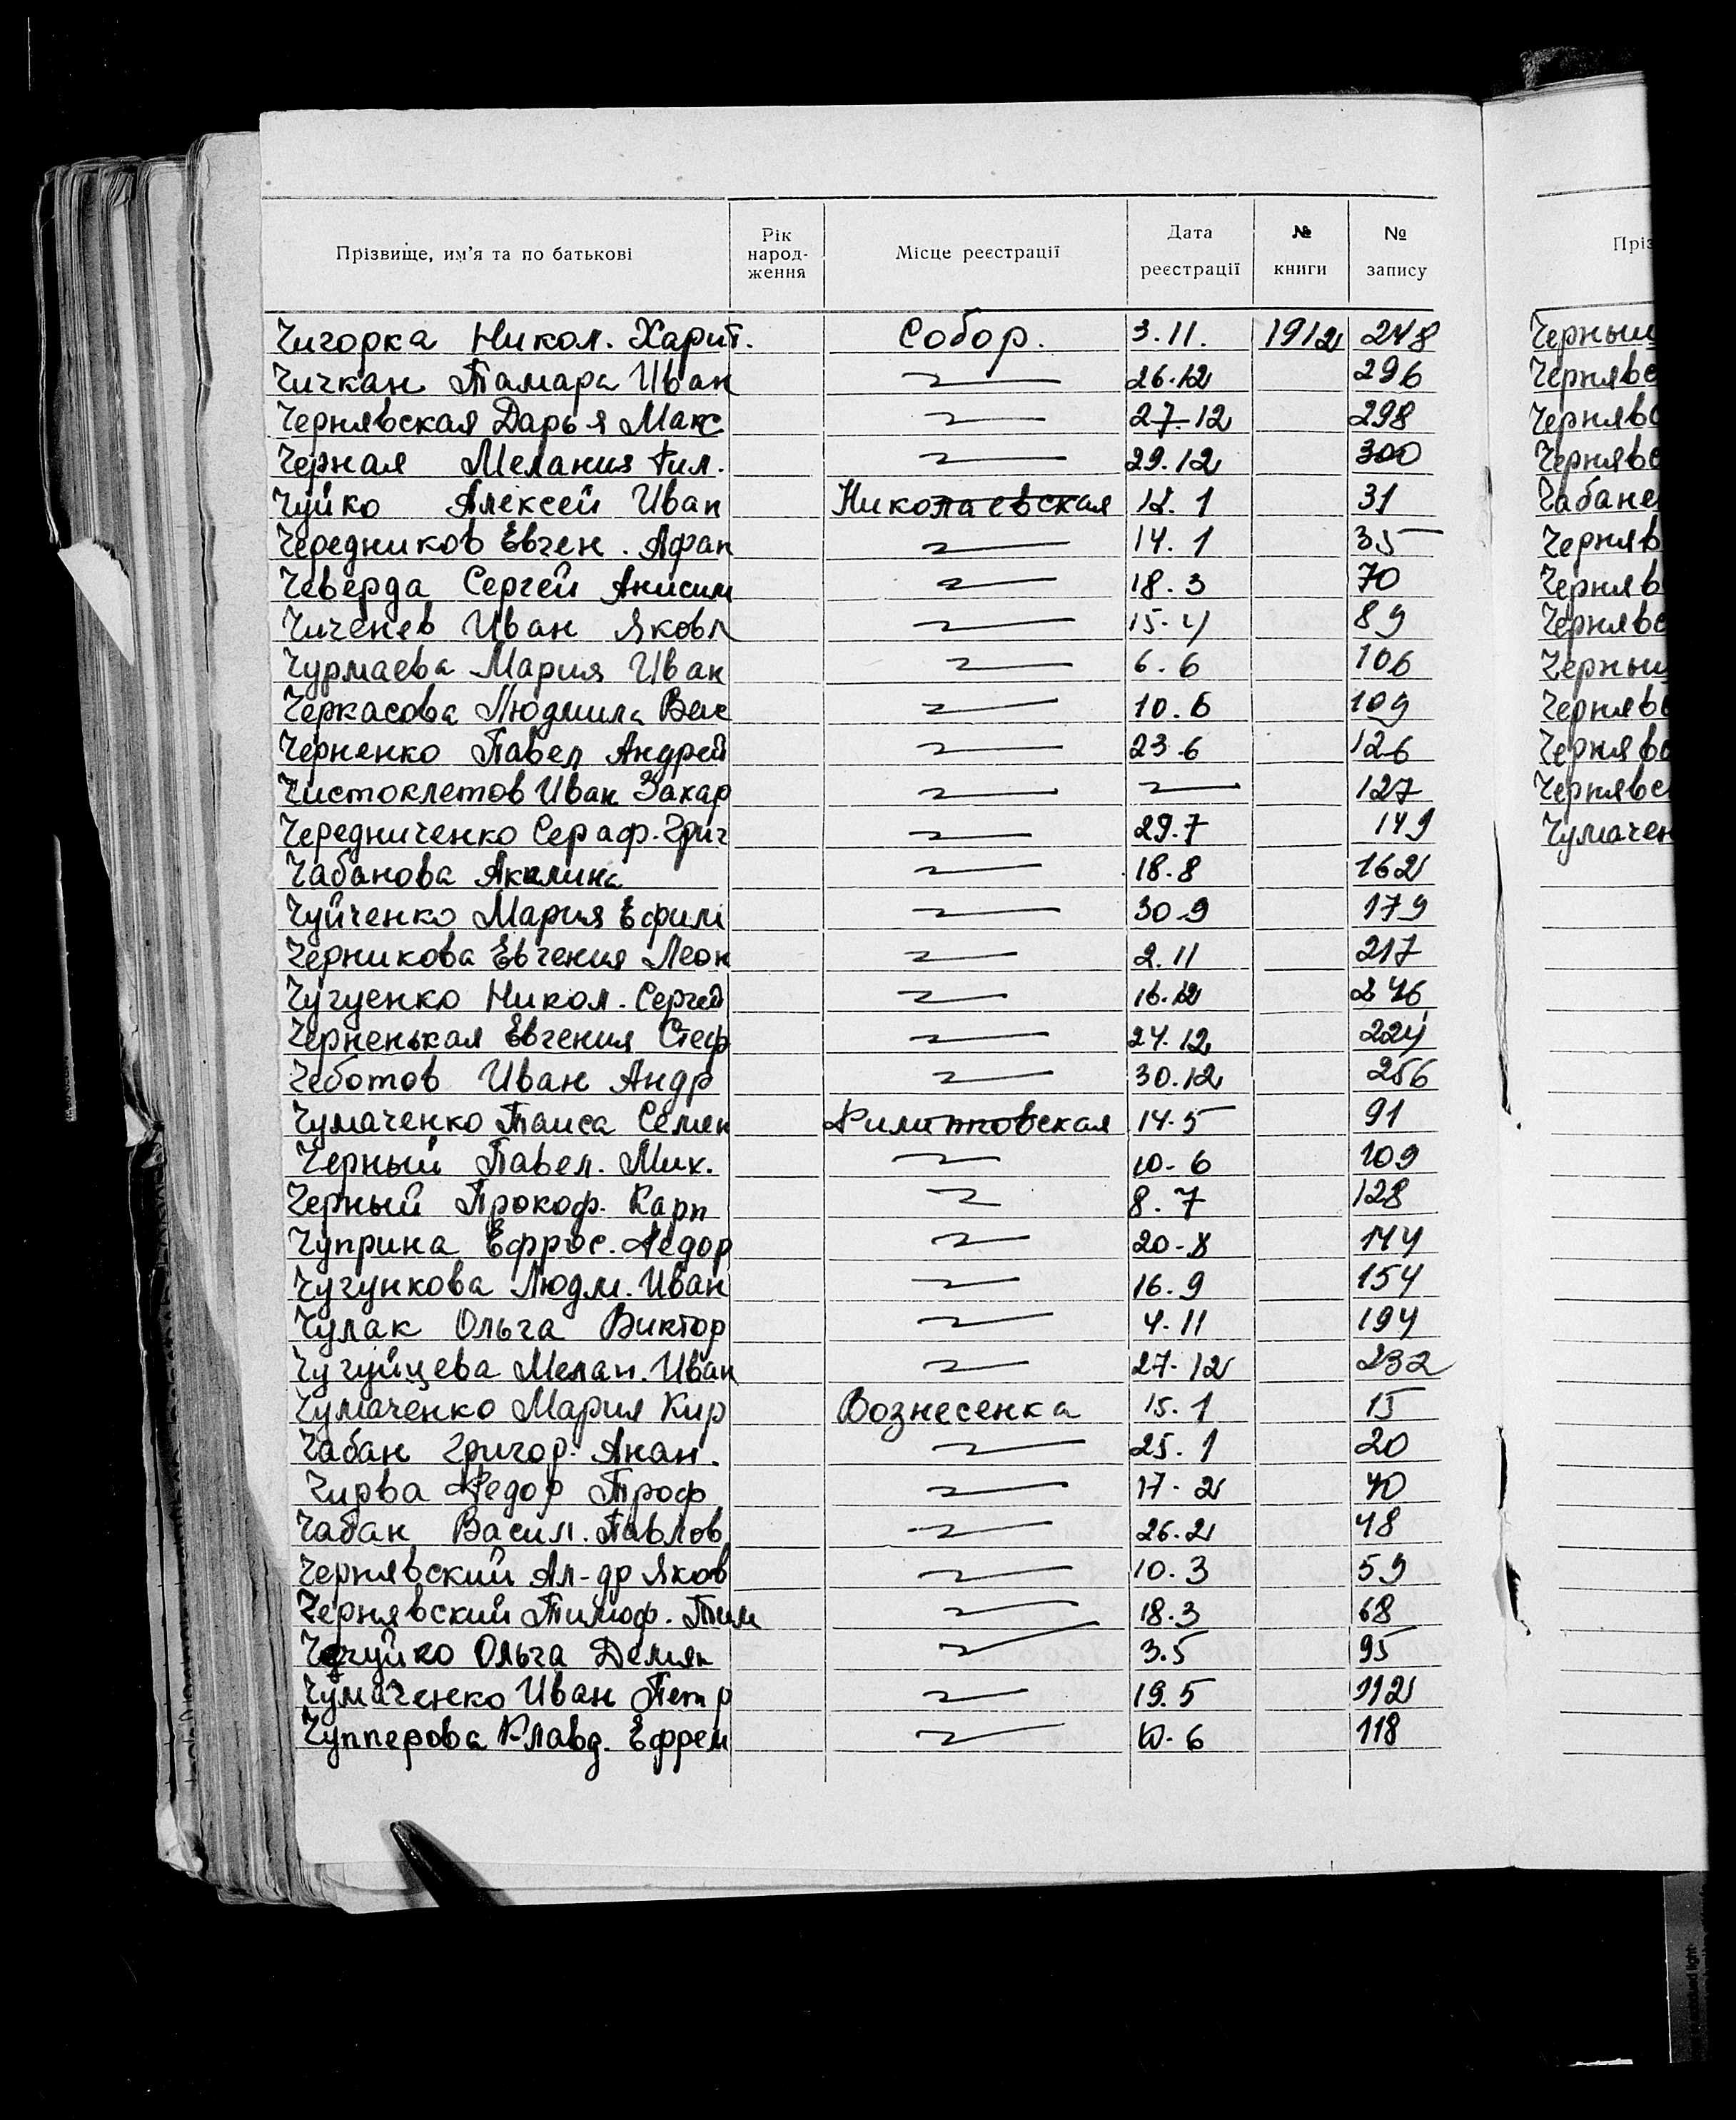 Прізвище, им'я та по батькові Рік народ-ження Місце реєстрації Дата реєстрації № книги № запису
Чигорка Никол. Харит. Собор. 3.11. 1912 248
Чичкан Тамара Иван 26.12 296
Чернявская Дарья Макс 27-12 298
Черная Мелания Фил. 29.12 300
Чуйко Алексей Иван Николаевская 12.1 31
Чередников Евген. Афан 14.1 35
Чеверда Сергей Анисим 18.3 70
Чиченев Иван Яковл 15-4 89
Чурмаева Мария Иван 6.6 106
Черкасова Людмила Вас 10.6 109
Черненко Павел Андрей 23.6 126
Чистоклетов Иван Захар 127
Чередниченко Сераф. Григ 29.7 149
Чабанова Акилина 18.8 162
Чуйченко Мария Ефим 30-9 179
Черникова Евгения Леон 2.11 217
Чугуенко Никол. Сергей 16.12 246
Черненькая Евгения Стеф 24.12 224
Чеботов Иван Андр 30.12 256
Чумаченко Таиса Семен Филипповская 14.5 91
Черный Павел. Мих. 10-6 109
Черный Прокоф. Карп 8.7 128
Чуприна Ефрос. Федор 20-8 144
Чугункова Людм. Иван 16.9 154
Чулак Ольга Виктор 4.11 194
Чугуйцева Мелан. Иван 27-12 232
Чумаченко Мария Кир Вознесенка 15.1 15
Чабан Григор. Анан. 25.1 20
Чирва Федор Троф 17-2 40
Чабан Васил. Павлов 26.2 48
Чернявский Ал-др Яков 10.3 59
Чернявский Тимоф. Тим 18.3 68
Ольга Демян 3.5 95
Чумаченко Иван Петр 19.5 112
Чупперова Клавд. Ефрем 10-6 118